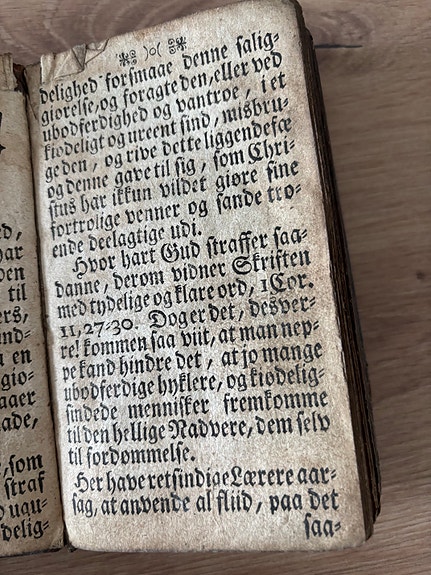 d,
ar
den
til
ers,
und-
a en
gio-
ager
ade,
,som
straf
uau-
delig-
)o(
delighed forsmaae denne salig-
giørelse, og foragte den, eller ved
ubodferdighed og vantroe, i et
kiødeligt og ureent sind, misbru-
ge den, og rive dette liggendefæ
og denne gave til sig, som Chri-
stus har ikkun vildet giøre sine
fortrolige venner og sande tro-
ende deelagtige udi.
Hvor hart Gud straffer saa-
danne, derom vidner Skriften
med tydelige og klare ord, 1 Cor.
11, 27-30. Dog er det, desver-
re! kommen saa viit, at man nep-
pe kand hindre det, at jo mange
ubodferdige hyklere, og kiødelig-
sindede mennisker fremkomme
til den hellige Nadvere, dem selv
til fordømmelse.
Her have retsindige Lærere aar-
sag, at anvende al fliid, paa det
saa-